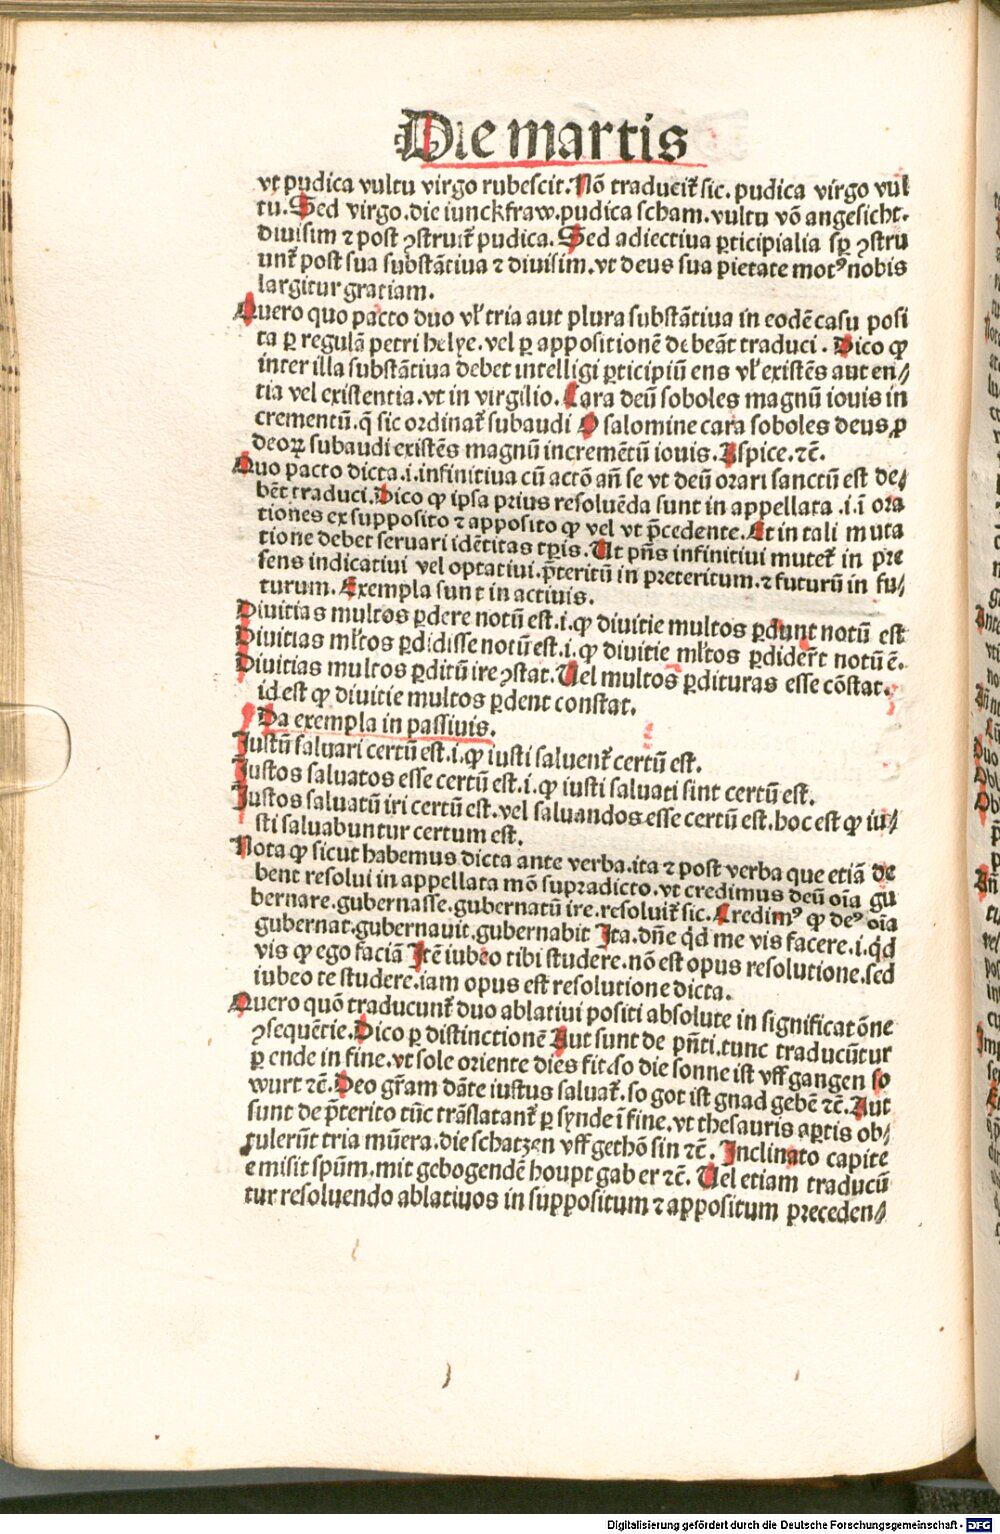 Die martis
vt pudica vultu virgo rubescit. Nō traduciť sic. pudica virgo vul
tu. Sed virgo. die iunckfraw. pudica scham. vultu vō angesicht.
diuisim ⁊ post ꝯstruiť pudica. Sed adiectiua ꝑticipialia sꝑ ꝯstru
unť post sua substātiua ⁊ diuisim. vt deus sua pietate motꝰ nobis
largitur gratiam.
Quero quo pacto duo vl' tria aut plura substātiua in eodē casu posi
ta ꝑ regulā petri helye. vel ꝑ appositionē debeāt traduci. Dico ꝙ
inter illa substātiua debet intelligi ꝑticipiū ens vl' existēs aut en⸗
tia vel existentia. vt in virgilio. Cara deū soboles magnū iouis in
crementū. q̄ sic ordinať subaudi O salomine cara soboles deus ꝓ
deoꝝ subaudi existēs magnū incremētū iouis. Aspice. ⁊c̄.
Quo pacto dicta .i. infinitiua cū actō an̄ se vt deū orari sanctū est de⸗
bēt traduci. Dico ꝙ ipsa prius resoluēda sunt in appellata .i. ī ora
tiones ex supposito ⁊ apposito ꝙ vel vt p̄cedente. Et in tali muta
tione debet seruari idētitas tꝑis. Ut pn̄s infinitiui muteť in pre
sens indicatiui vel optatiui. p̄teritū in preteritum. ⁊ futurū in fu⸗
turum. Exempla sunt in actiuis.
Diuitias multos ꝑdere notū est. i. ꝙ diuitie multos ꝑdunt notū est
Diuitias ml'tos ꝑdidisse notū est. i. ꝙ diuitie ml'tos ꝑdiderūt notū ē.
Diuitias multos ꝑditū ire ꝯstat. Uel multos ꝑdituras esse cōstat.
id est ꝙ diuitie multos ꝑdent constat.
Da exempla in passiuis.
Iustū saluari certū est. i. ꝙ iusti saluenť certū est.
Iustos saluatos esse certū est. i. ꝙ iusti saluati sint certū est.
Iustos saluatū iri certū est. vel saluandos esse certū est. hoc est ꝙ iu⸗
sti saluabuntur certum est.
Nota ꝙ sicut habemus dicta ante verba. ita ⁊ post verba que etiā de
bent resolui in appellata mō supradicto. vt credimus deū oīa gu
bernare. gubernasse. gubernatū ire. resoluiť sic. Credimꝰ ꝙ deꝰ oīa
gubernat. gubernauit. gubernabit Ita. dn̄e q̄d me vis facere. i. q̄d
vis ꝙ ego faciā Itē iubeo tibi studere. nō est opus resolutione. sed
iubeo te studere. iam opus est resolutione dicta.
Quero quō traducunť duo ablatiui positi absolute in significatōne
ꝯsequētie. Dico ꝑ distinctionē Aut sunt de pn̄ti. tunc traducūtur
ꝑ ende in fine. vt sole oriente dies fit. so die sonne ist vff gangen so
wurt ⁊c̄. Deo gr̄am dāte iustus saluať. so got ist gnad gebē ⁊c̄. Aut
sunt de p̄terito tūc trāslatanť ꝑ synde ī fine. vt thesauris aꝑtis ob⸗
tulerūt tria mūera. die schatzen vff gethō sin ⁊c̄. Inclinato capite
emisit spūm. mit gebogendē houpt gab er ⁊c̄. Uel etiam traducū
tur resoluendo ablatiuos in suppositum ⁊ appositum preceden⸗
Digitalisierung gefördert durch die Deutsche Forschungsgemeinschaft - DFG